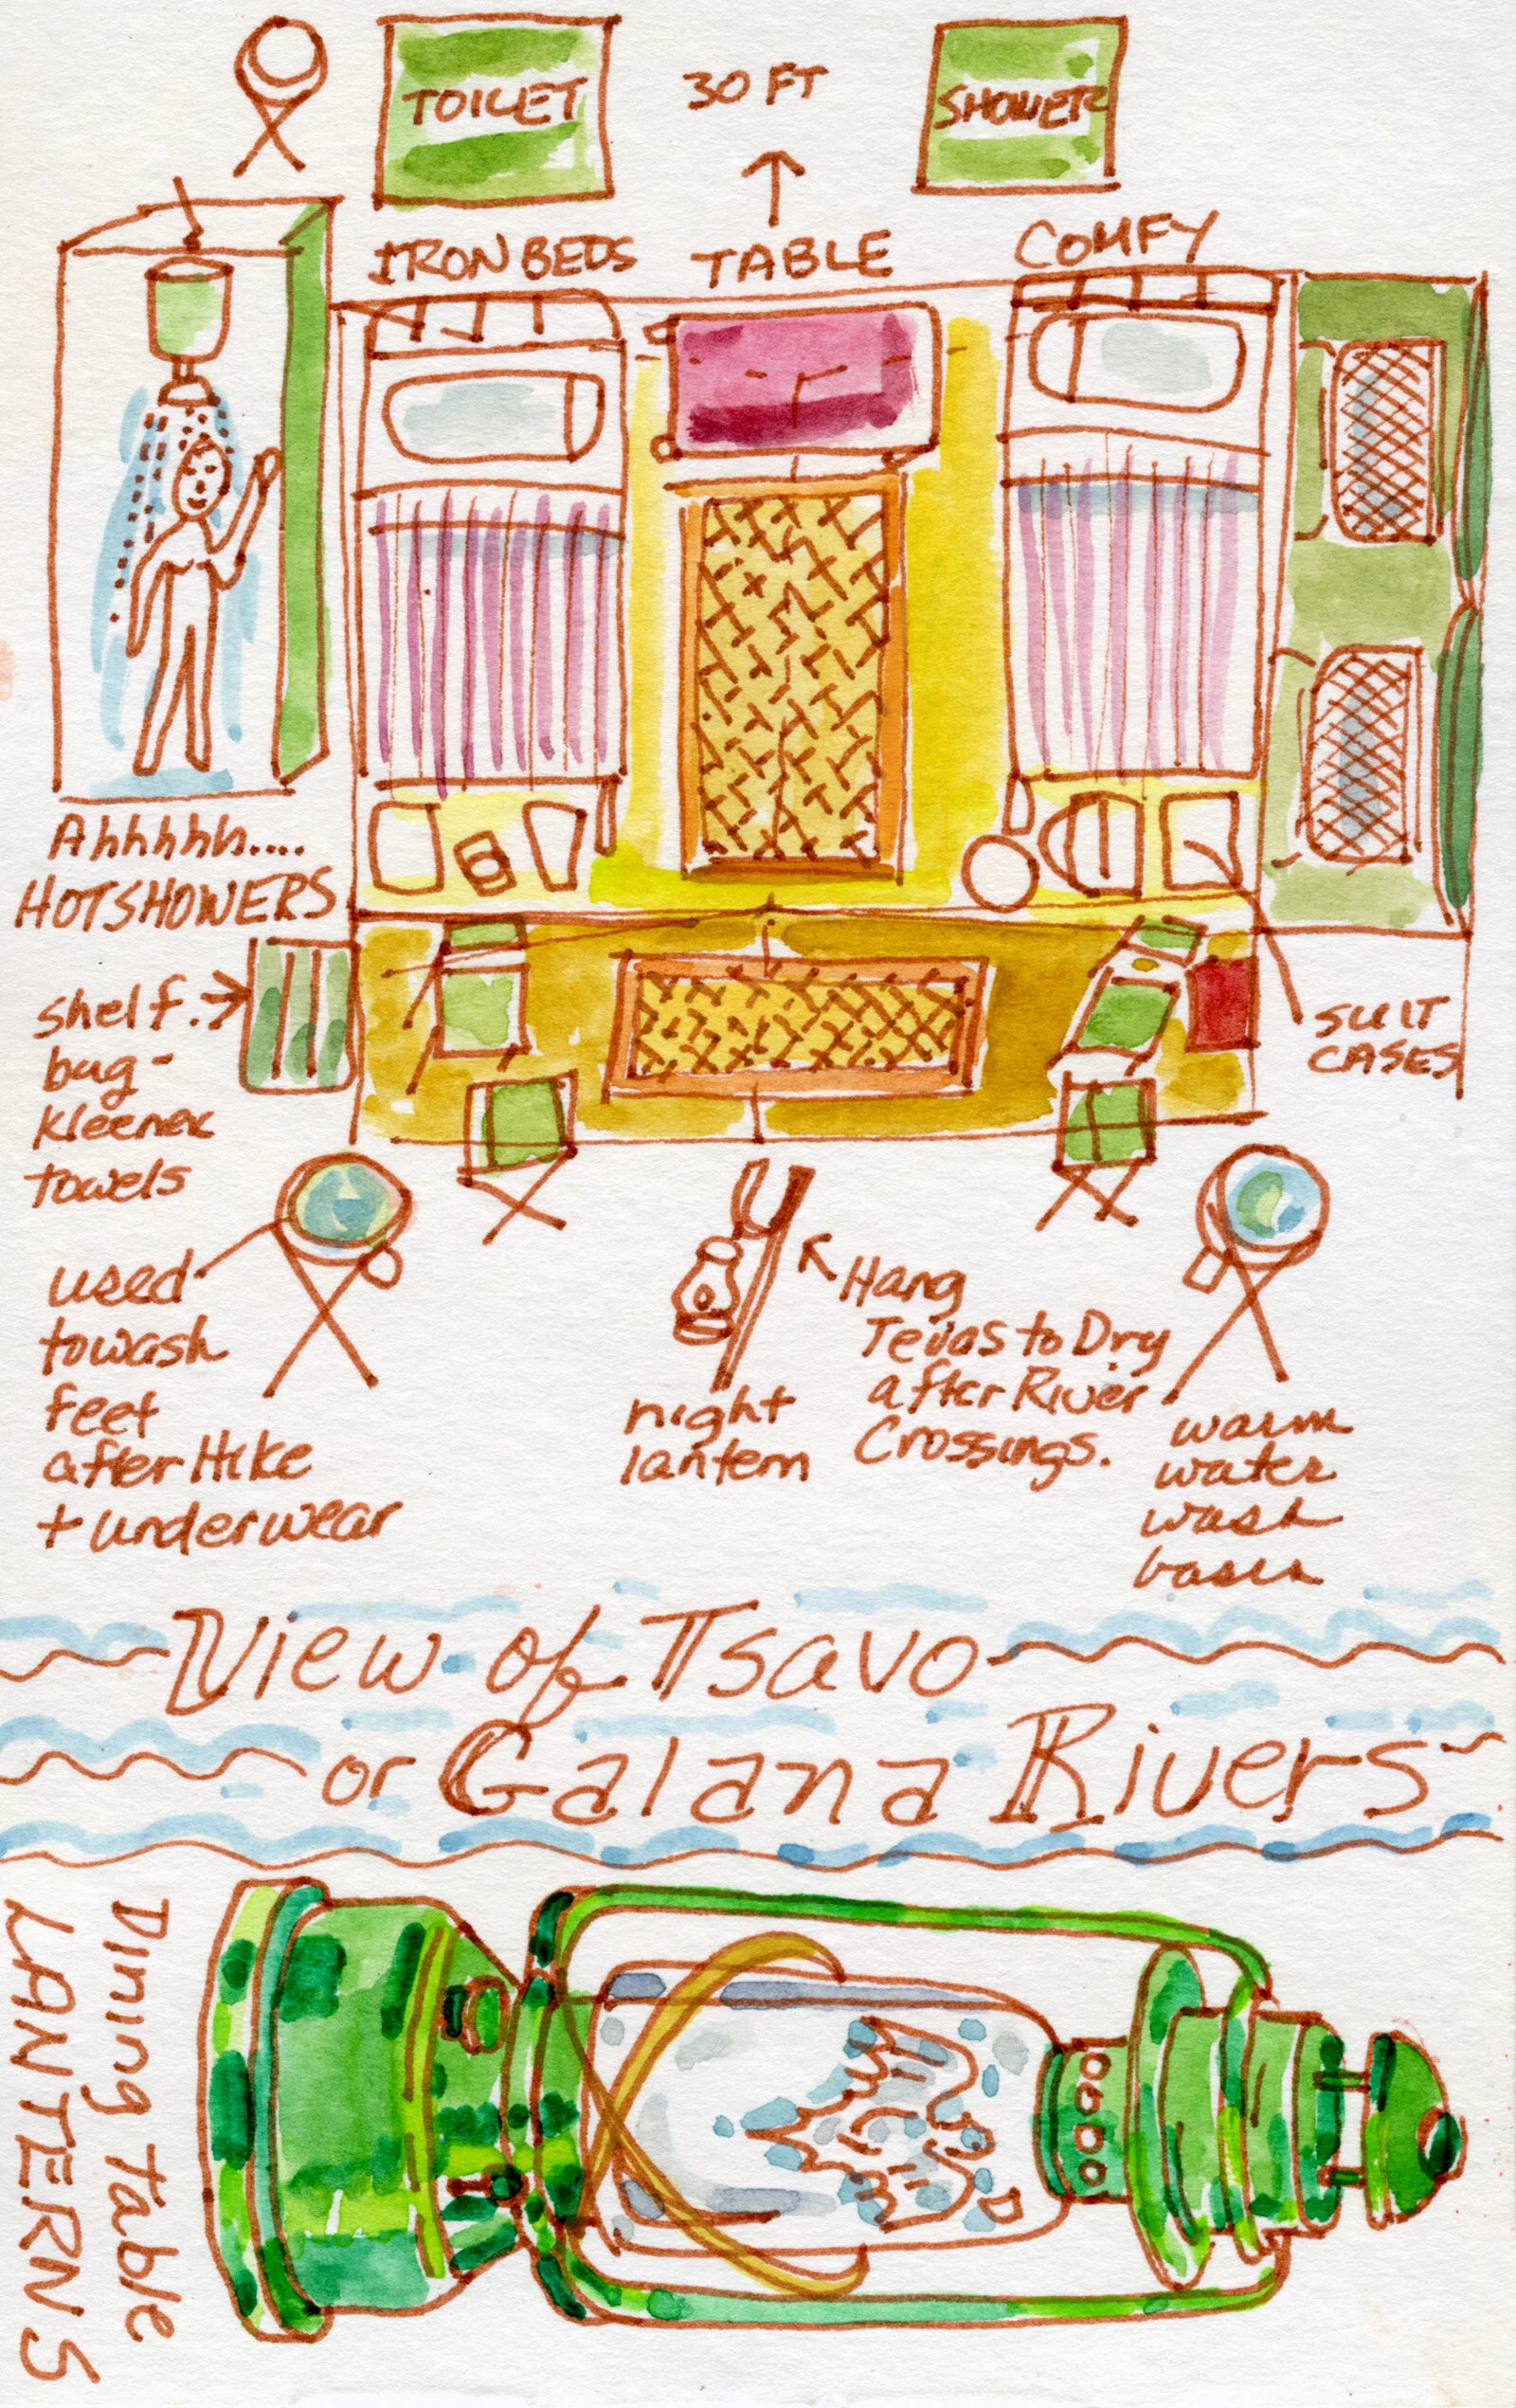 TOILET
30 FT
SHOWER
IRON BEDS
TABLE
COMFY
Ahhhhhh....
HOT SHOWERS
shelf.
bag-
Kleenex
towels
SUIT
CASES
used
to wash
feet
after Hike
+ underwear
night
lantern
Hang
Tevas to Dry
after River
Crossings.
warm
water
wash
basin
View of Tsavo
or Galana Rivers
Dining Table
LANTERNS